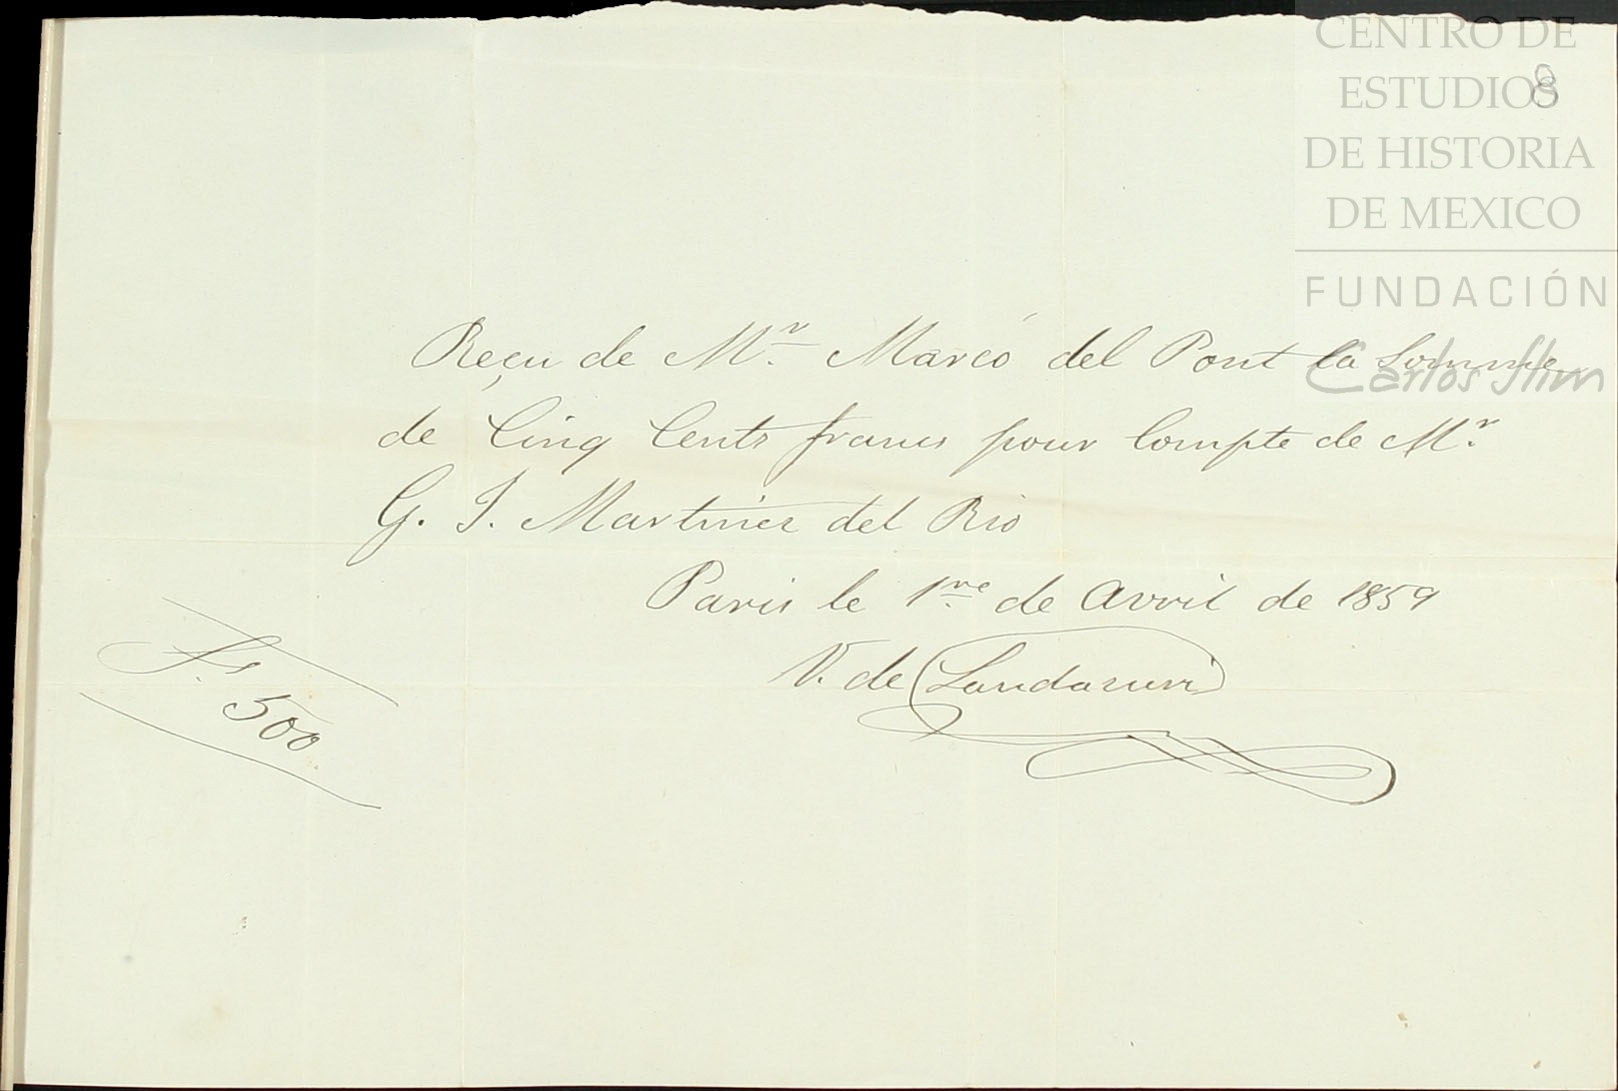 8
CENTRO DE
ESTUDIOS
DE HISTORIA
DE MEXICO
FUNDACIÓN
Carlos Slim
Reçu de Mr. Marcó del Pont la Somme
de Cinq Cents francs pour Compte de Mr.
G. J. Martinez del Rio
Paris le 1re de Avril de 1859
V. de Landazuri
Fs. 500